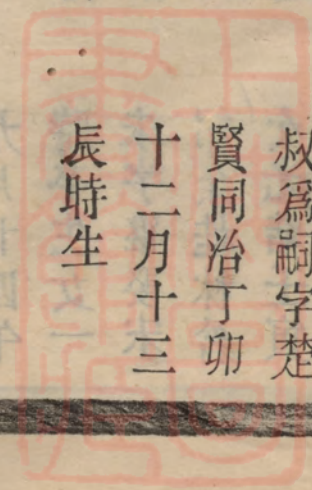 叔爲嗣字楚
賢同治丁卯
十二月十三
辰時生